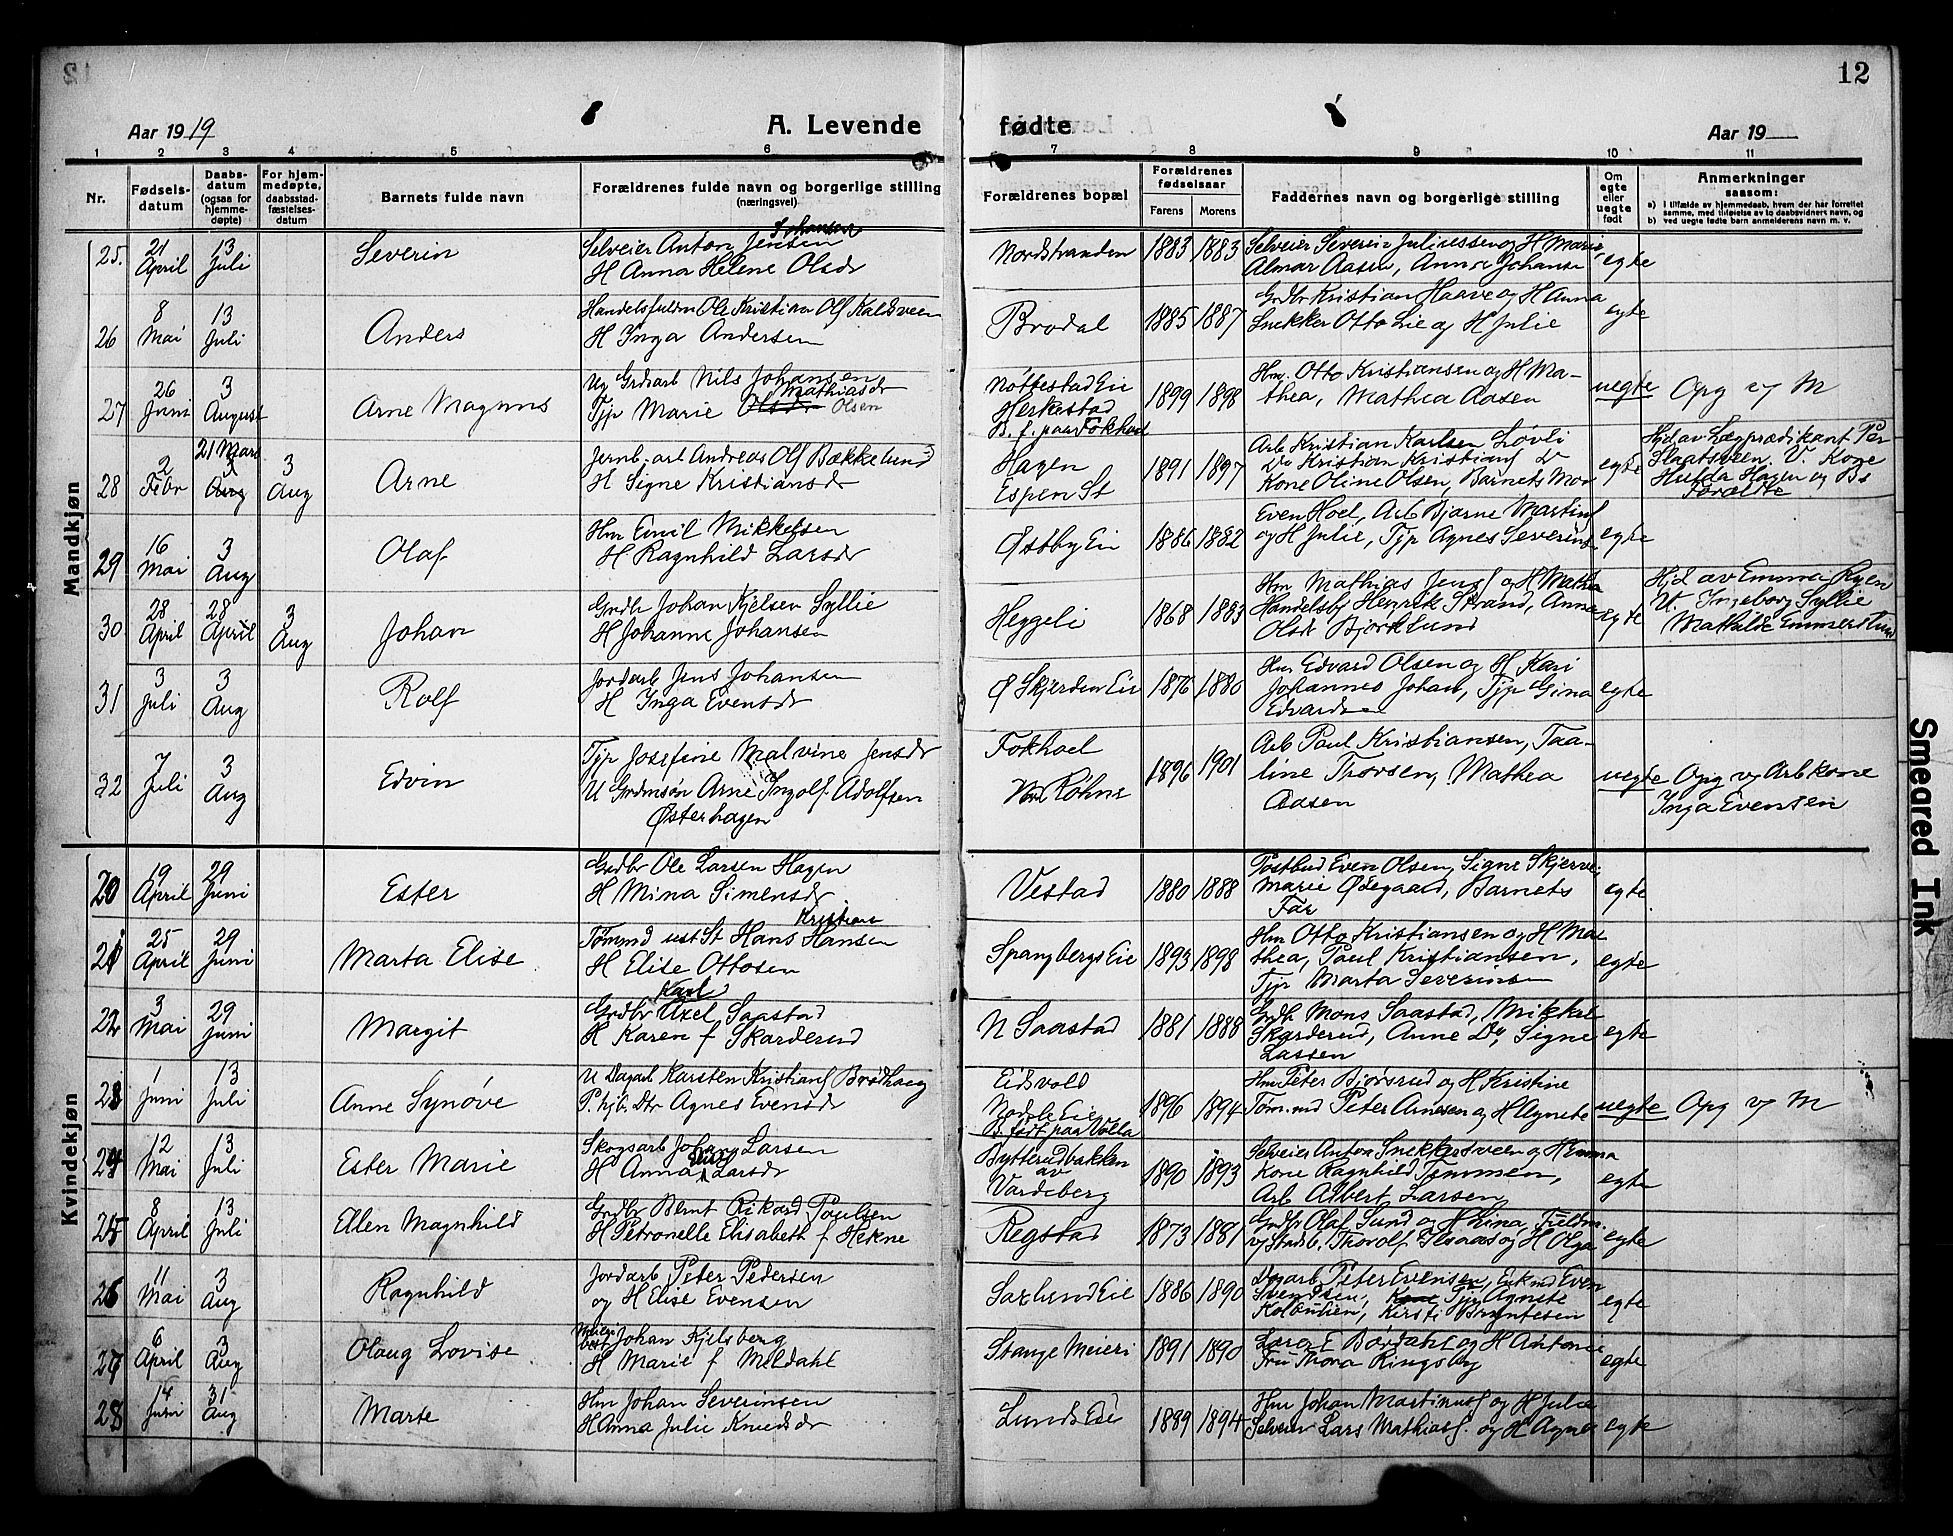 12
Aar 1919
A. Levende fødte
Aar 19
1 2 3 4 5 6 7 8 9 10 11
Nr.
Fødsels-
datum
Daabs-
datum
(ogsaa for
hjemme-
døpte)
For hjem-
medøpte,
daabsstad-
fæstelses-
datum
Barnets fulde navn
Forældrenes fulde navn og borgerlige stilling
(næringsvei)
Forældrenes bopæl
Forældrenes
fødselsaar
Farens Morens
Faddernes navn og borgerlige stilling
Om
egte
eller
uegte
født
Anmerkninger
saasom:
a) I tilfælde av hjemmedaab, hvem der har forrettet
samme, med tilføielse av to daabsvidners navn, og
b) ved uegte fødte børn anmelderens navn m. v.
Mandkjøn
25. 21 April 13 Juli Severin
Selveier Anton Jensen Johansen
H Anna Helene Olsdr
Nordstranden 1883 1883
Selveier Severin Juliussen og H Marie,
Almar Aasen, Anna Johanse
egte
26 8 Mai 13 Juli Anders
Handelsfuldm Ole Kristian Ols Kalsveen
H Inga Andersen
Brodal 1885 1887
Grdbr Kristian Haave og H Anna
Snekker Otto Lie og H Julie
egte
27 26 Juni 3 August Arne Magnus
Ug Grdsarb Nils Johansen
Tjp Marie Olsdr Mathiasdr Olsen
Nøttestad Eie
Herkestad
B. f. paa Fokhol
1899 1898
Hm. Otto Kristiansen og H Ma-
thea, Mathea Aasen
uegte Opg v M
28 2 Febr 21 Mars 3 Aug 3 Aug Arne
Jernb. arb Andreas Ols Bækkelund
H Signe Kristiansdr
Hagen
Espen St
1891 1897
Arb Kristian Karlsen Løvli
Do Kristian Kristians Do
Kone Oline Olsen, Barnets Mor
egte
Hjd av Lægprædikant Per
Slaatsveen V. Kone
Hulda Hagen og Bs
Forældre
29 16 Mai 3 Aug Olaf
Hm Emil Mikkelsen
H Ragnhild Larsdr
Østby Eie 1886 1882
Even Hoel, Arb Bjarne Martins
og H Julie, Tjp Agnes Severins
egte
30 28 April 28 April 3 Aug Johan
Grdbr Johan Kjelsen Syllie
H Johanne Johansen
Heggeli 1868 1883
Hm Mathias Jens og H Mathea
Handelsb Henrik Strand, Anna
Olsdr Bjørklund
egte
Hjd av Emma Ryen
V. Ingeborg Syllie
Mathilde Emmerstund
31 3 Juli 3 Aug Rolf
Jordarb Jens Johansen
H Inga Evensdr
Ø Skjerden Eie 1876 1880
Hm Edvard Olsen og H Kari
Johannes Johans, Tjp Gina
Edvards
egte
32 7 Juli 3 Aug Edvin
Tjp Josefine Malvine Jensdr
U Grdmsøn Arne Ingolf Adolfsen
Østerhagen
Fokhoel
Røhne
1896 1901
Arb Paul Kristiansen, Taa-
line Thorsen, Mathea
Aasen
uegte
Opg v Arb kone
Inga Evensen
Kvindekjøn
20 19 April 29 Juni Ester
Grdbr Ole Larsen Hagen
H Mina Simensdr
Vestad 1880 1888
Postbud Even Olsen, Signe Skjerve,
Marie Ødegaard, Barnets
Far
egte
21 25 April 29 Juni Marta Elise
Tømmd ust St Hans Kristian Hansen
H Elise Ottosen
Spangbergs Eie 1893 1898
Hm Otto Kristiansen og H Ma-
thea, Paul Kristiansen,
Tjp Marta Severinsen
egte
22 3 Mai 29 Juni Margit
Grdbr Axel Karl Saastad
H Karen f Skarderud
N Saastad 1881 1888
Grdb Mons Saastad, Mikkel
Skarderud, Anne Do, Signe
Lassen
egte
23 1 Juni 13 Juli Anne Synøve
U Dagarb Karsten Kristians Brødhaug
P. hjv. Dtr Agnes Evensdr
Eidsvold
Nodole Eie
B. født paa Volla
1896 1894
Hm Peter Bjørsrud og H Kristine
Tøm.md Peter Arnesen og H Agnete
uegte Opg v M
24 12 Mai 13 Juli Ester Marie
Skogsarb Johan Larsen
H Anna Larsdr
Bytterudbakken
av
Vardeberg
1890 1893
Selveier Anton Snekkersveen og H Emma
Kone Ragnhild Temmsen,
Arb Albert Larsen
egte
25 8 April 13 Juli Ellen Magnhild
Grdbr Bernt Rikard Paulsen
H Petronelle Elisabeth f Hekne
Regstad 1873 1881
Grdbr Olaf Sund og H Lina, Fuldm.
v/ Stadsb. Thorolf Ilsaas og H Olga
egte
26 11 Mai 3 Aug Ragnhild
Jordarb Peter Pedersen
og H Elise Evensen
Saxlund Eie 1886 1890
Dagarb Peter Evensen, Eikmd Even
Svendsen, Kone Tjp Agnete
Kolbulien, Kirsti Bryntesen
egte
27 6 April 3 Aug Olaug Lovise
Meieri best Johan Kjelsberg
H Marie f Meldahl
Stange Meieri 1891 1890
Lars E Børdahl og H Antonie
Fru Thora Ringsby
egte
28 14 Juni 31 Aug Marte
Hm Johan Severinsen
H Anna Julie Knudsdr
Lunds Eie 1889 1894
Hm Johan Martinus og H Julie
Selveier Lars Mathias. og H Agnes
egte
Smeared Ink